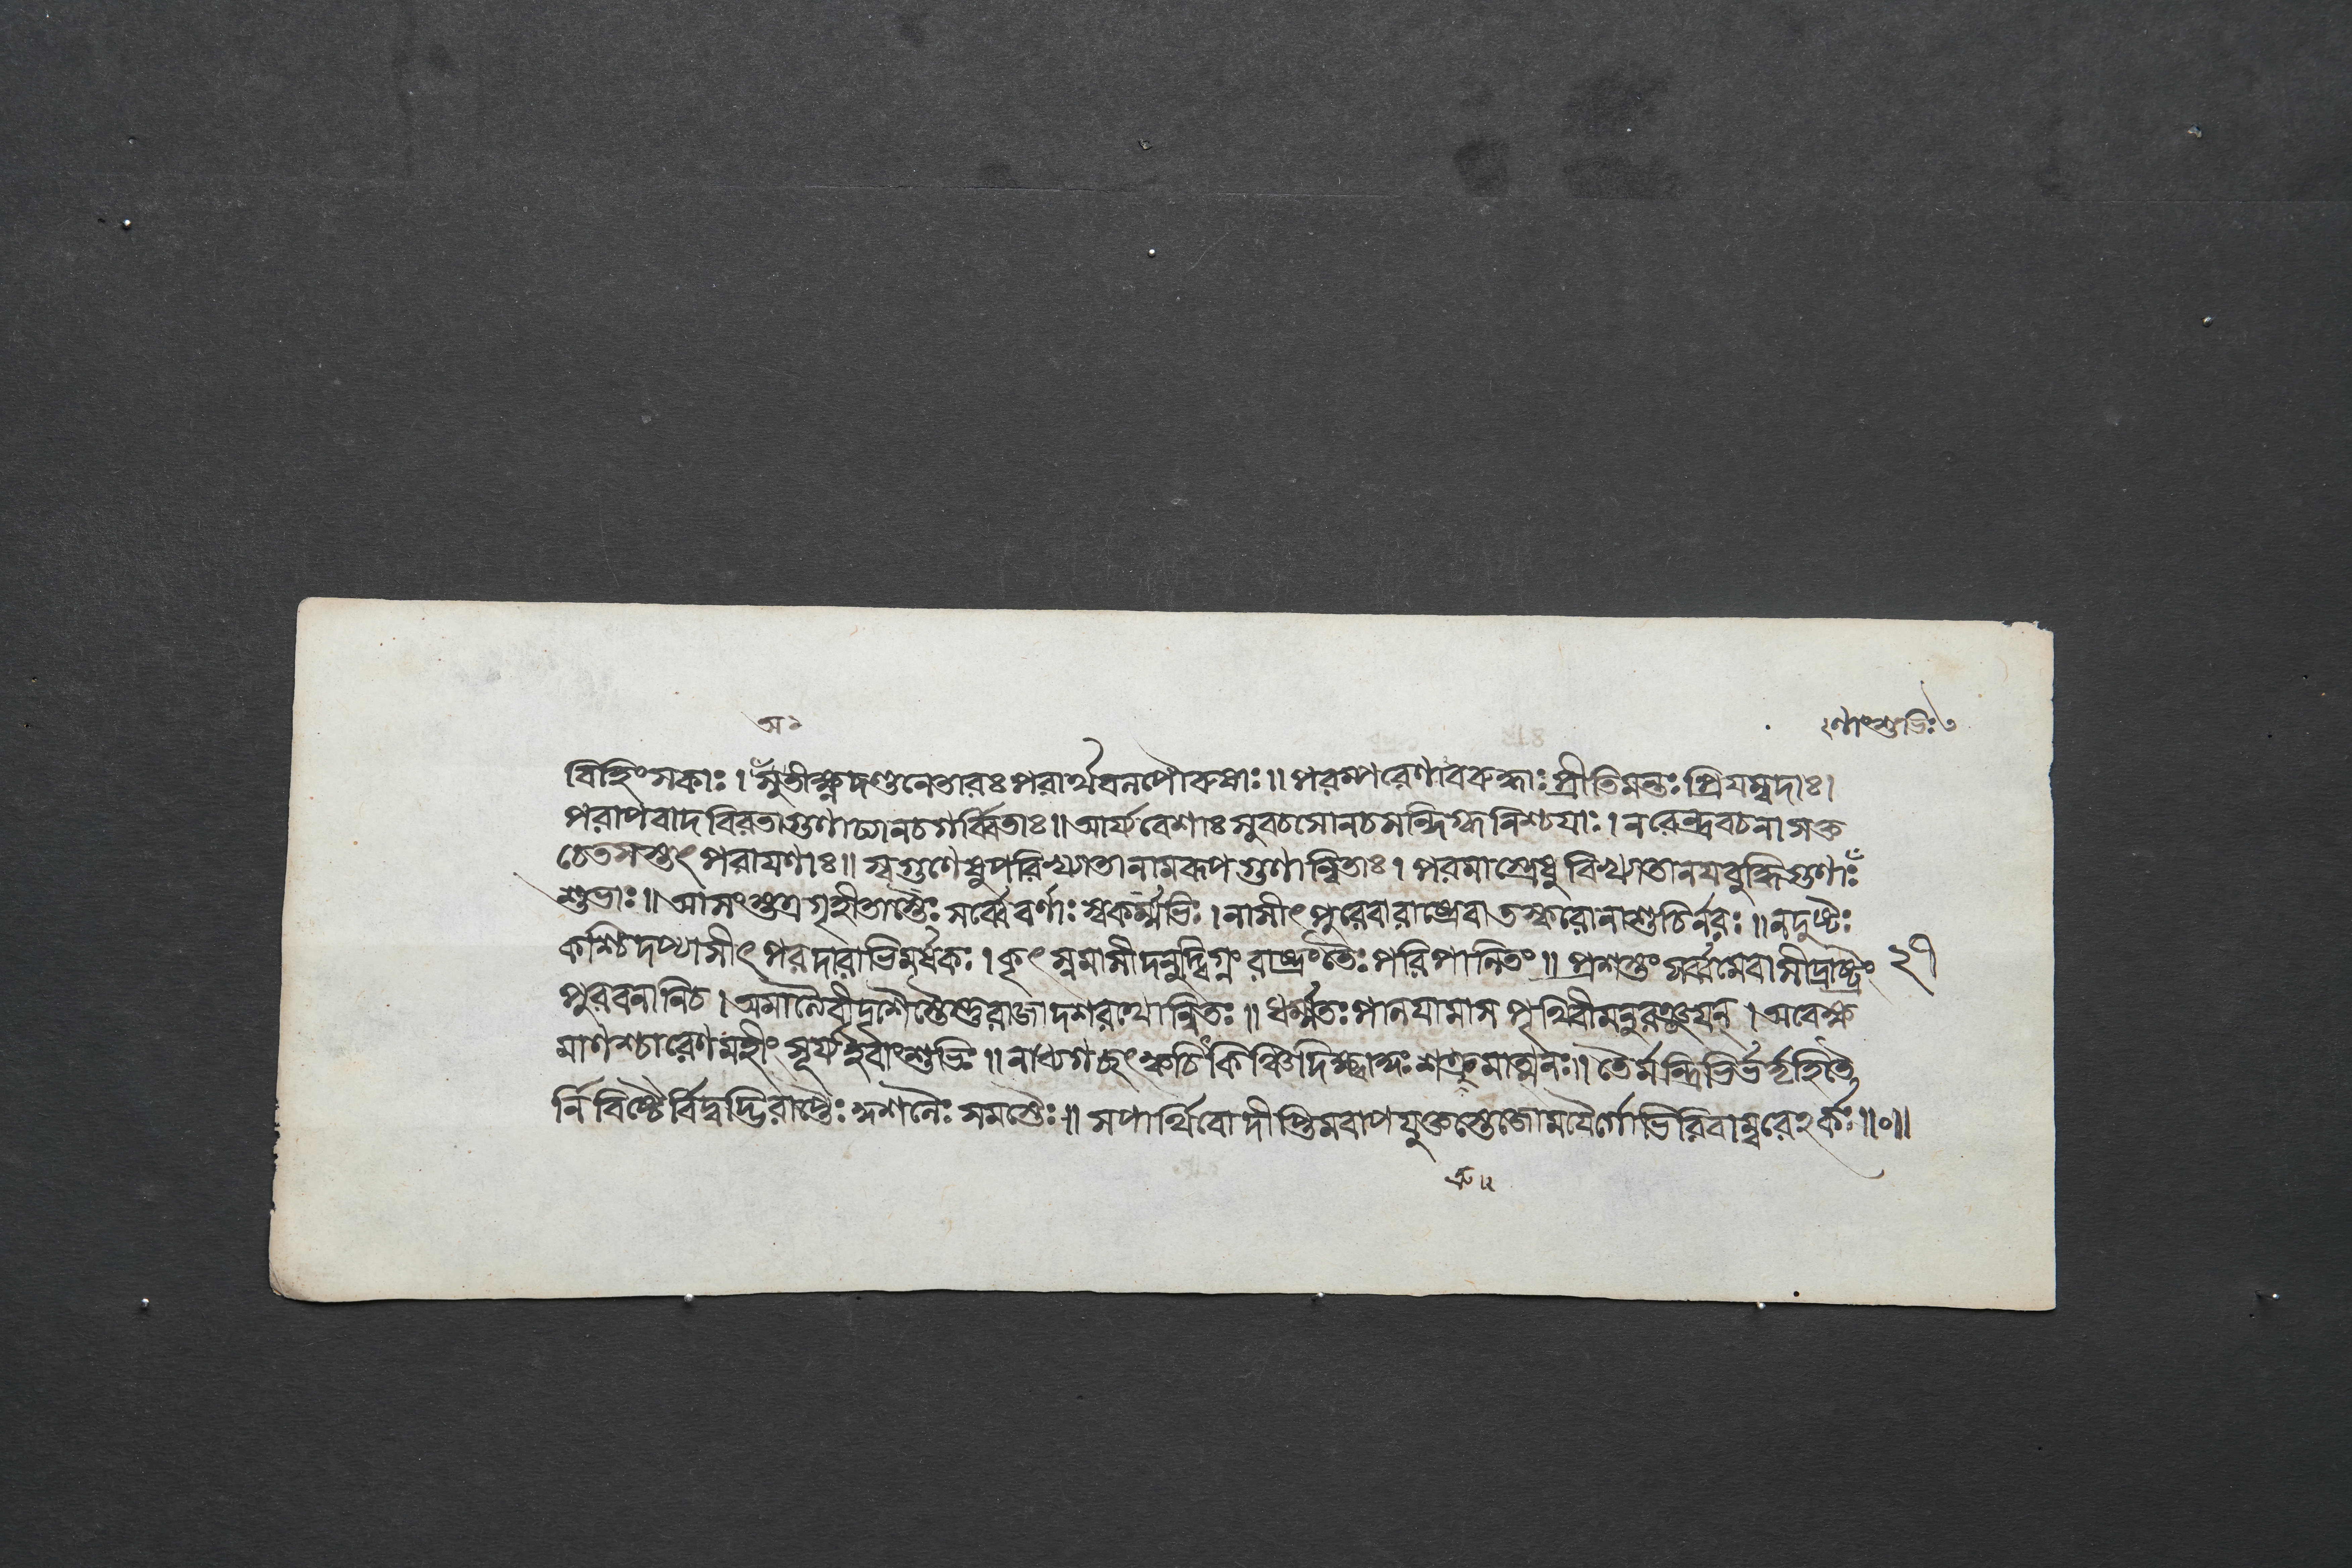 অ১
২ণাংশুভিঃ৩
বিহিংসকাঃ । সুতীক্ষ্ণদণ্ডনেতারঃ পরার্থবলপৌরুষাঃ ॥ পরস্পরেণাবিরুদ্ধাঃ প্রীতিমন্তঃ প্রিয়ম্বদাঃ ।
পরাপবাদবিরতাগুণাঢ্যানচগর্ব্বিতাঃ ॥ আর্য্যবেশাঃ সুবচসোনচসন্দিগ্ধনিশ্চয়াঃ । নরেন্দ্রবচনাসক্ত
চেতসস্তৎ পরায়ণাঃ ॥ স্বগুণেষুপরিখ্যাতানামরূপগুণান্বিতাঃ । পরমাস্ত্রেষু বিখ্যাতানয়বুদ্ধিগুণাঃ
শুভাঃ ॥ আসংস্তত্রগৃহীতাস্তৈঃ সর্ব্বেবর্ণাঃ স্বকর্ম্মভিঃ । নাসীৎ পুরেবারাষ্ট্রেবা তস্করোনাশুচির্নরঃ ॥ নদুষ্টঃ
কশ্চিদপ্যাসীৎ পরদারাভিমর্ষকঃ । কৃৎস্নমাসীদনুদ্বিগ্নং রাষ্ট্রংতৈঃ পরিপালিতং ॥ প্রশস্তং সর্ব্বমেবাসীদ্রাষ্ট্রং
২৭
পুরবনানিচ । অমাত্যৈরীদৃশৈস্তৈস্তুরাজাদশরথোন্বিতঃ ॥ ধর্ম্মতঃ পালয়ামাস পৃথিবীমনুরঞ্জয়ন্ । অবেক্ষ
মাণশ্চারেণমহীং সূর্য্যইবাংশুভিঃ ॥ নাধ্যগচ্ছৎ ক্বচিৎকিঞ্চিদিক্ষ্বাকুঃ শত্রুমাত্মনঃ ॥ তৈর্মন্ত্রিভির্ভর্ত্তৃহিতৈ
র্নিবিষ্টৈর্বিদ্বদ্ভিরাপ্তৈঃ কুশলৈঃ সমস্তৈঃ ॥ সপার্থিবোদীপ্তিমবাপযুক্তস্তেজোময়ৈর্গোভিরিবাম্বরেঽর্কঃ ॥০॥